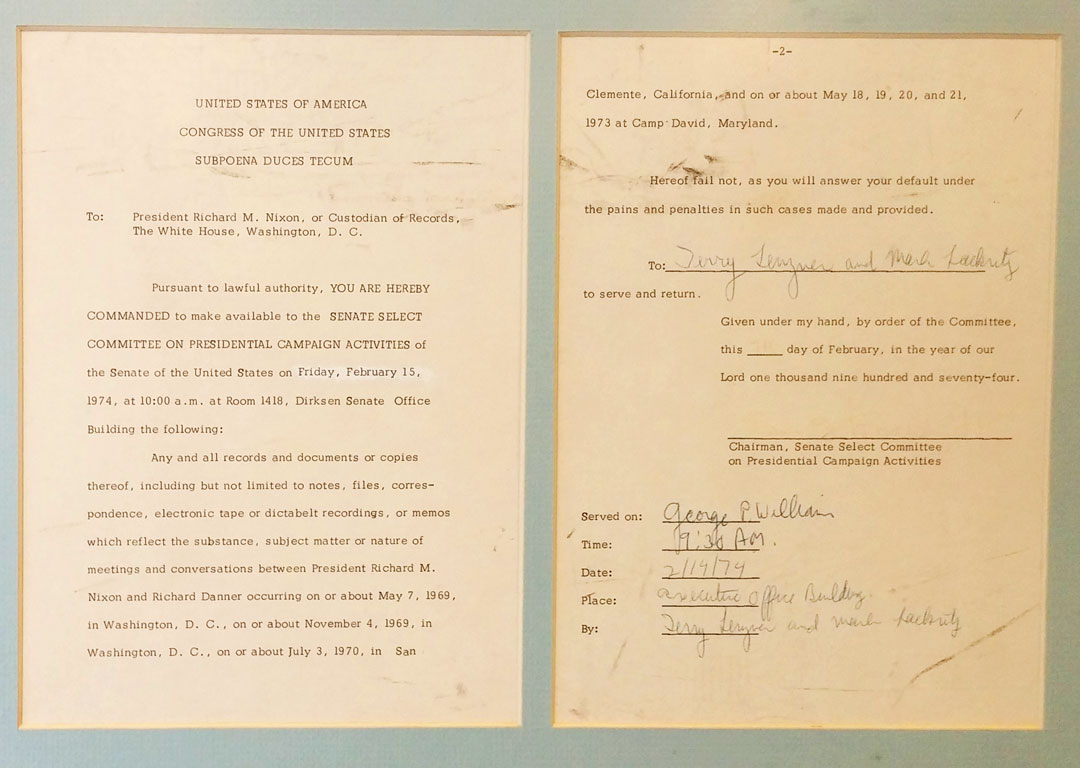 UNITED STATES OF AMERICA
CONGRESS OF THE UNITED STATES
SUBPOENA DUCES TECUM
To: President Richard M. Nixon, or Custodian of Records,
The White House, Washington, D. C.
Pursuant to lawful authority, YOU ARE HEREBY
COMMANDED to make available to the SENATE SELECT
COMMITTEE ON PRESIDENTIAL CAMPAIGN ACTIVITIES of
the Senate of the United States on Friday, February 15,
1974, at 10:00 a.m. at Room 1418, Dirksen Senate Office
Building the following:
Any and all records and documents or copies
thereof, including but not limited to notes, files, corres-
pondence, electronic tape or dictabelt recordings, or memos
which reflect the substance, subject matter or nature of
meetings and conversations between President Richard M.
Nixon and Richard Danner occurring on or about May 7, 1969,
in Washington, D. C., on or about November 4, 1969, in
Washington, D. C., on or about July 3, 1970, in San
-2-
Clemente, California, and on or about May 18, 19, 20, and 21,
1973 at Camp David, Maryland.
Hereof fail not, as you will answer your default under
the pains and penalties in such cases made and provided.
To: Terry Lenzner and Mark Lackritz
to serve and return.
Given under my hand, by order of the Committee,
this ____ day of February, in the year of our
Lord one thousand nine hundred and seventy-four.
Chairman, Senate Select Committee
on Presidential Campaign Activities
Served on: George P. Williams
Time: 9:30 AM.
Date: 2/14/74
Place: Executive Office Building
By: Terry Lenzner and Mark Lackritz